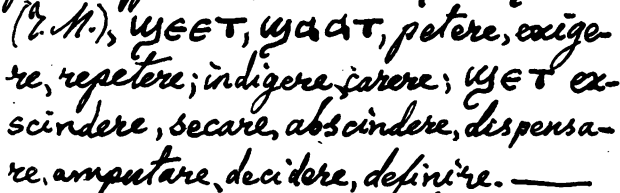 (T. M.), ϣⲉⲉⲧ, ϣⲁⲁⲧ, petere, exige-
re, repetere; indigere, carere; ϣⲉⲧ ex-
scindere, secare, abscindere, dispensa-
re, amputare, decidere, definire. —